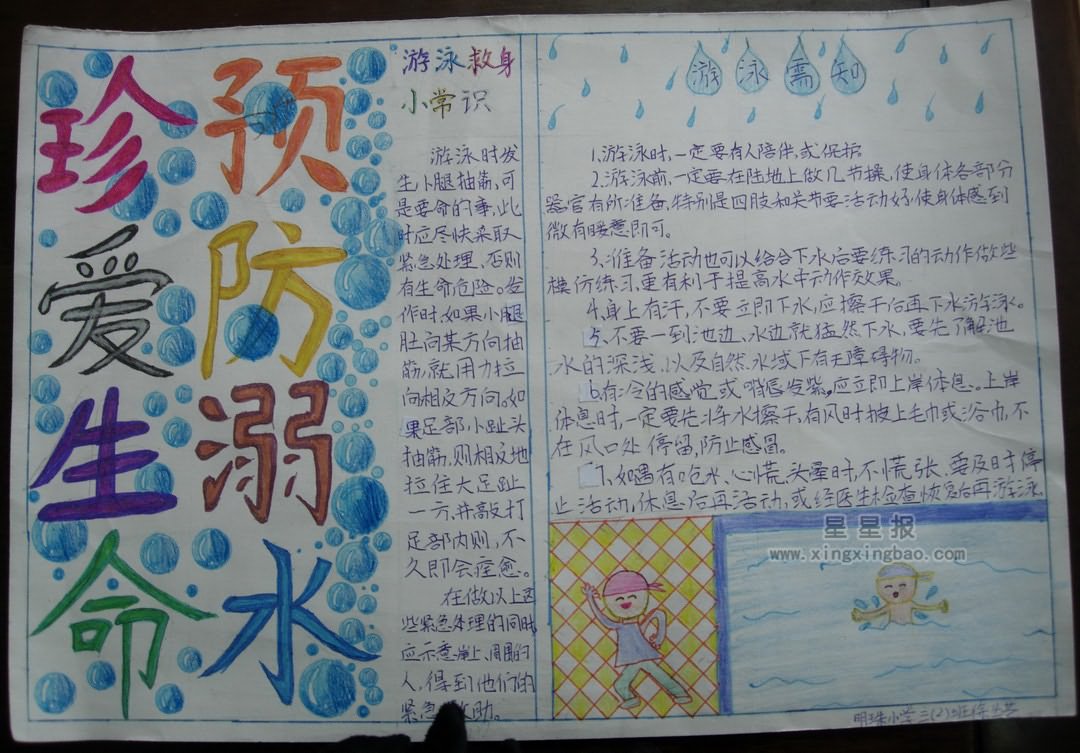 珍爱生命
预防溺水
游泳救身
小常识
游泳时发
生小腿抽筋,可
是要命的事,此
时应尽快采取
紧急处理、否则
有生命危险。发
作时,如果小腿
肚向某方向抽
筋,就用力拉
向相反方向。如
果足部小趾头
抽筋,则相反地
拉住大足趾
一方,并敲打
足部内则,不
久即会痊愈。
在做以上这
些紧急处理的同时,
应示意岸上、周围的
人,得到他们的
紧急救助。
游泳需知
1.游泳时,一定要有人陪伴,或保护。
2.游泳前,一定要在陆地上做几节操,使身体各部分
器官有所准备,特别是四肢和关节要活动好,使身体感到
微有暖意即可。
3.准备活动也可以结合下水后要练习的动作做些
模仿练习,更有利于提高水中动作效果。
4.身上有汗,不要立即下水,应擦干后再下水游泳。
5.不要一到池边、水边就猛然下水,要先了解池
水的深浅,以及自然水域下有无障碍物。
6.有冷的感觉或嘴唇发紫,应立即上岸休息。上岸
休息时,一定要先将水擦干,有风时披上毛巾或浴巾,不
在风口处停留,防止感冒。
7.如遇有呛水、心慌、头晕时,不慌张,要及时停
止活动,休息后再活动,或经医生检查恢复后再游泳
星星报
www.xingxingbao.com
明珠小学三(2)班徐